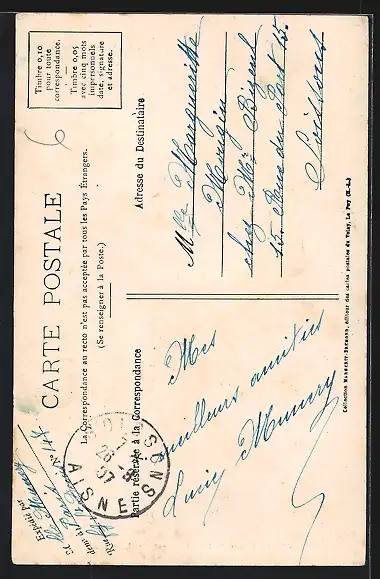 CARTE POSTALE
La Correspondance au recto n'est pas acceptée par tous les Pays Étrangers.
(Se renseigner à la Poste.)
Timbre 0,10
pour toute
correspondance.
Timbre 0,05
avec cinq mots
impersonnels
date, signature
et adresse.
6
Expédié par
Partie réservée à la Correspondance
Mes
meilleurs amitiés
Lucie
Adresse du Destinataire
Mlle Marguerite
Mougin
chez Mr
15. Rue du Port 15.
Soissons
SOISSONS
AISNE
Collection Margerit-Brémond, éditeur des cartes postales du Velay, Le Puy (H.-L.)